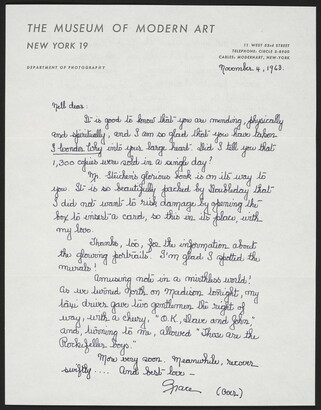 THE MUSEUM OF MODERN ART
NEW YORK 19
11 WEST 53rd STREET
TELEPHONE: CIRCLE 5-8900
CABLES: MODERNART, NEW-YORK
DEPARTMENT OF PHOTOGRAPHY
November 4, 1963.
Nell dear:
It is good to know that you are mending, physically
and spiritually, and I am so glad that you have taken
I Wonder Why into your large heart. Did I tell you that
1,300 copies were sold in a single day!
Mr. Steichen's glorious book is on its way to
you. It is so beautifully packed by Doubleday that
I did not want to risk damage by opening the
box to insert a card, so this in its place, with
my love.
Thanks, too, for the information about
the glowing portraits. I'm glad I spotted the
murals!
Amusing note in a mirthless world!
As we turned North on Madison tonight, my
taxi driver gave two gentlemen the right of
way, with a cheery, "O.K., Dave and John,"
and, turning to me, allowed "Those are the
Rockefeller boys."
More very soon. Meanwhile, recover
swiftly.... And best love —
Grace